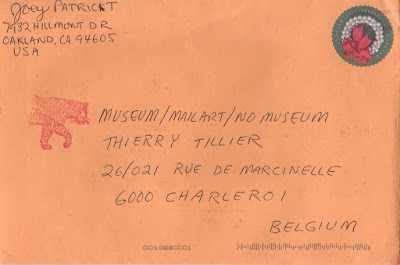 Joey PATRICKT
7432 HILLMONT DR
OAKLAND, CA 94605
USA
MUSEUM/MAILART/NO MUSEUM
THIERRY TILLIER
26/021 RUE DE MARCINELLE
6000 CHARLEROI
BELGIUM